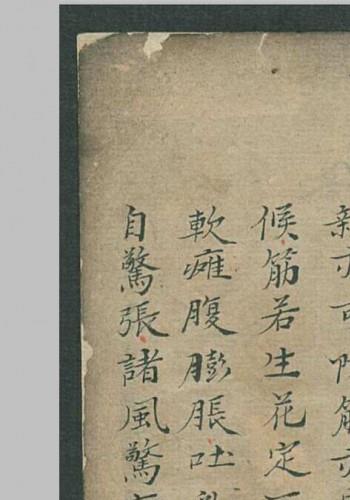 新亦可
候筋若生花定
軟癱腹膨脹吐
自驚張諸風驚